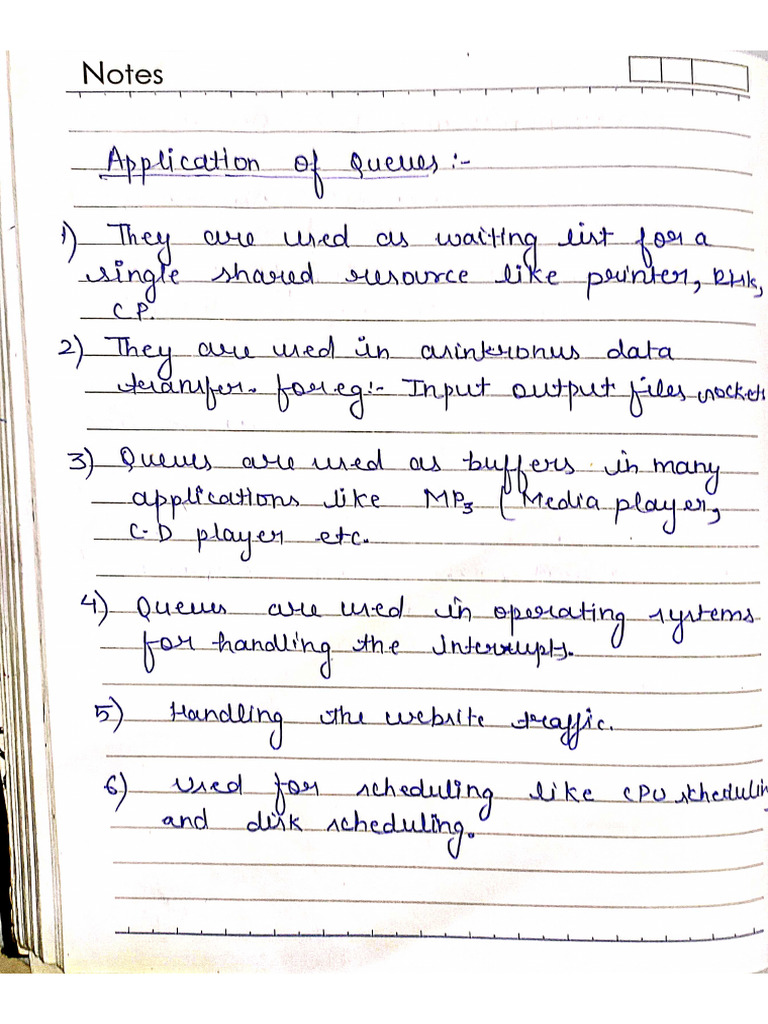 Notes
Application of Queues :-
1) They are used as waiting list for a
single shared resource like printer,
C P.
2) They are used in asinkronus data
transfer. for eg:- Input output files sockets
3) Queues are used as buffers in many
applications like MP3 (Media player,
C-D player etc.
4) Queues are used in operating systems
for handling the interrupts.
5) Handling the website traffic.
6) Used for scheduling like CPU scheduling
and disk scheduling.